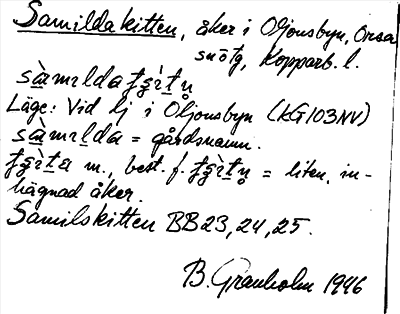 Samildakitten, åker i Oljonsbyn, Orsa
snötg, Kopparb. l.
Läge: Vid lj i Oljonsbyn (KG103NV)
= gårdsnamn.
m., best. f. = liten, in-
hägnad åker.
Samilskitten BB23, 24, 25.
B. Granholm 1946